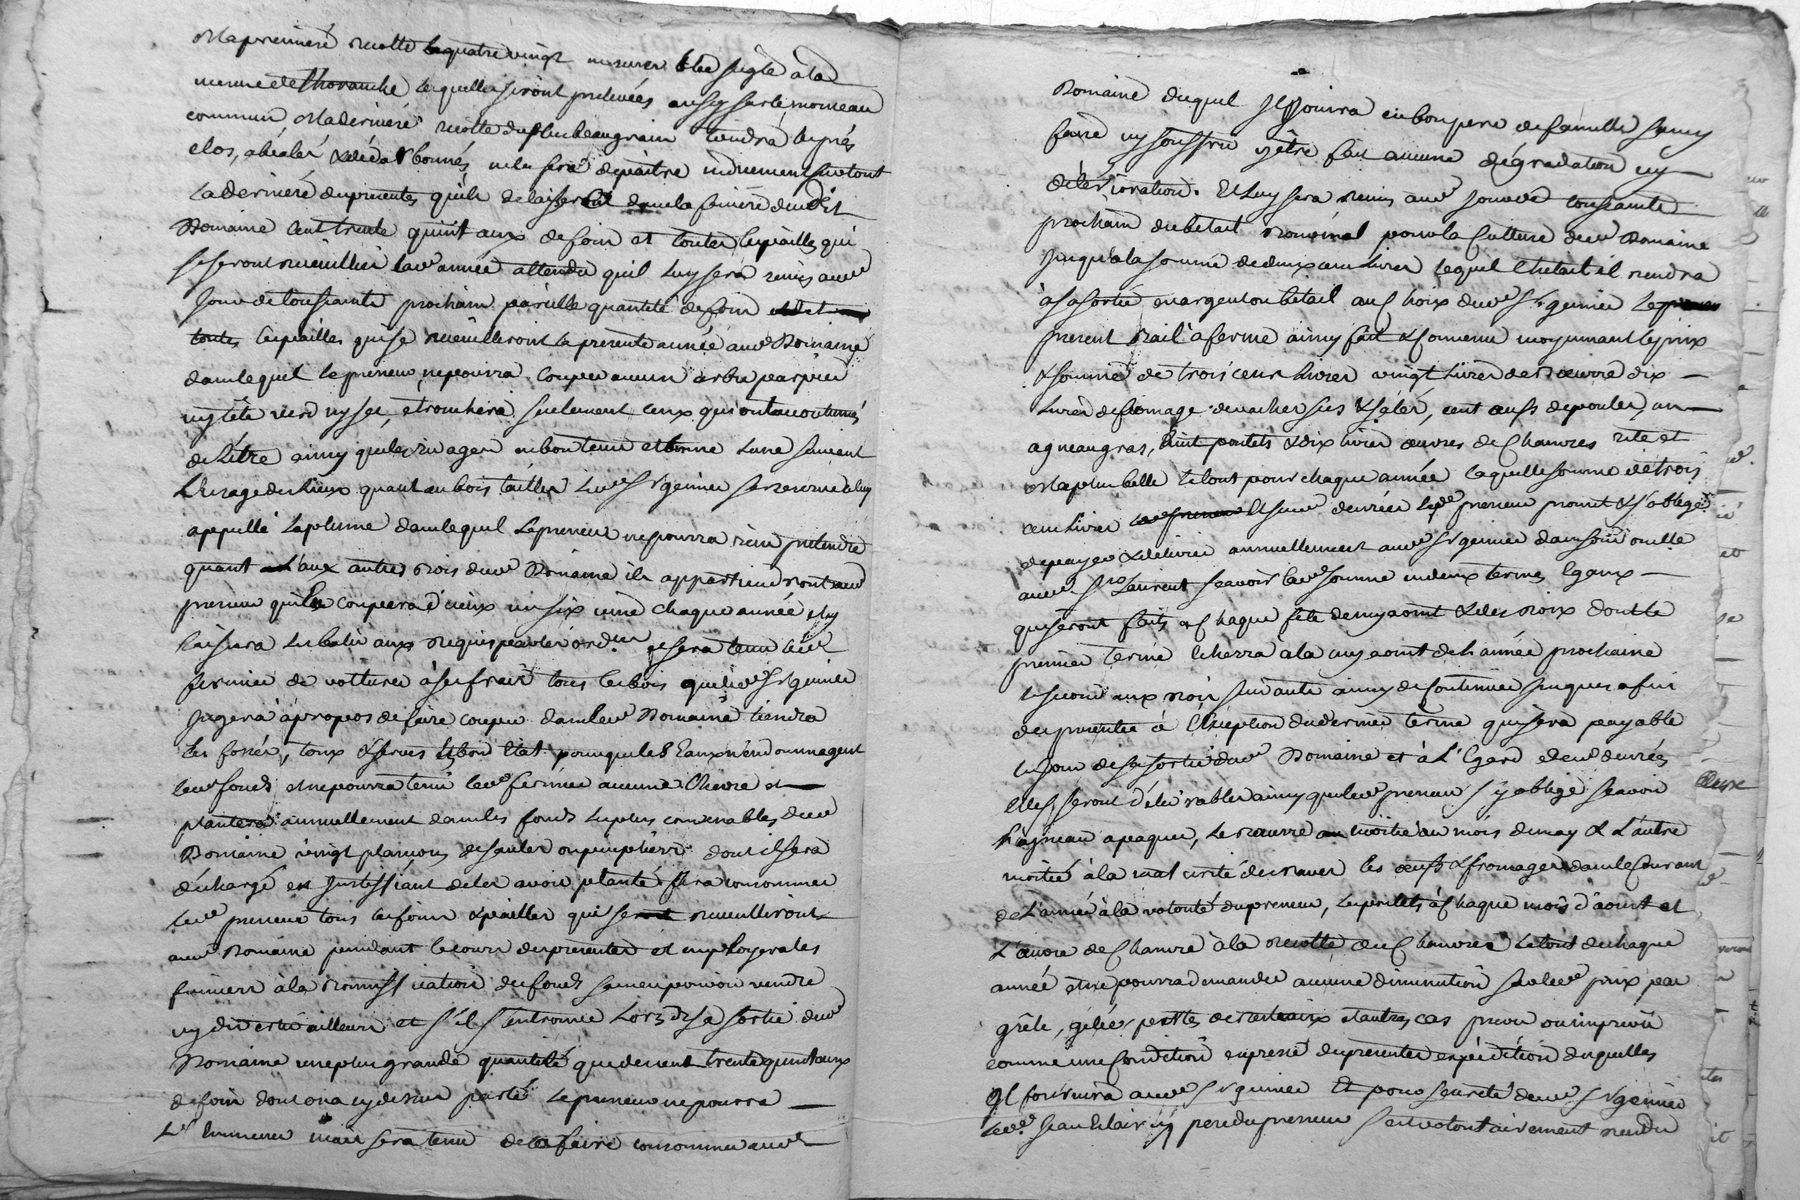 et la premiere recolte le quatre vingt mesures bled seigle a la
mesure de Thoranche lesquelles seront prelevées aussy sur le monceau
commun et la derniere recolte du plus beau grain tiendra les prés
clos, abealés et bonnés ne les fera depaitre indument surtout
la derniere des presentes qu'il delaissera dans la feniere dudit
Domaine cent trente quintaux de foin et toutes les pailles qui
se seront recueillies lad année attendu quil luy sera remis aud
jour de toussaints prochain pareille quantité de foin et
toutes les pailles qui se recueilleront la presente année aud Domaine
dans lequel le preneur ne pourra couper aucun arbre par pied
ny tête verd ny sec, etronchera seulement ceux qui ont accoutumés
de l'être ainsy que les en bon tems et bonne lune suivant
l'usage des lieux quant au bois taillis led Sr genier se reserve celuy
appellé la plume dans lequel le preneur ne pourra rien pretendre
quant aux autres bois dud Domaine ils appartiendront aud
preneur qu'il coupera d'eux en six une chaque année et y
laissera les baliveaux requis par les ordces et sera tenu led
fermier de voiturer à ses frais tous les bois que led Sr genier
jugera à propos de faire couper dans led Domaine tiendra
les fossés, et serves en bon Etat pour que les Eaux n'endommagent
les fonds et ne pourra tenir led fermier aucune Chevre et
plantera annuellement dans les fonds les plus convenables dud
Domaine vingt plançons de saules ou peupliers dont il sera
déchargé en justiffiant de les avoir planté fera consommer
led preneur tous les foins et pailles qui se recueilliront
aud Domaine pendant le cours des presentes et employera les
fumiers à la bonnification des fonds sans en pouvoir vendre
ny divertir ailleurs et s'il s'entrouve Lors de sa sortie dud
Domaine une plus grande quantité que de cent trente quintaux
de foin dont on a cy dessus parlé le preneur ne pourra
L'emmener mais sera tenu de le faire consommer aud
Domaine duquel Il Jouira en bon pere de famille sans y
faire ny souffrir y être fait aucune dégradation ny
déterioration. Et luy sera remis aud jour de toussaints
prochain du bétail pour la Culture dud Domaine
jusqu'à la somme de deux cens livres lequel il rendra
à sa sortie en argent ou bétail au Choix dud Sr genier le
present Bail à ferme ainsy fait et convenu moyennant le prix
et somme de trois cens livres vingt livres de Beurre dix
livres de fromage de vaches secs et salés, cent œufs de poules, un
agneau gras, huit poulets et dix livres œuvres de Chanvres rite et
la plus belle le tout pour chaque année laquelle somme de trois
cens livres et denrées led preneur promet et s'oblige
de payer et delivrer annuellement aud Sr genier dans son
aud St Laurent scavoir lad somme en deux termes Egaux
qui seront faits à Chaque fête de my aoust et des Rois dont le
premier terme Echerra à la my aoust de l'année prochaine
le second aux Rois suivants ainsy de Continuer jusques a fin
des presentes à l'Exeption du dernier terme qui sera payable
le jour de sa sortie dud Domaine et à L'Egard desd denrées
Elles seront delivrables ainsy que led preneur s'y oblige scavoir
L'agneau a paques, le Beurre moitié au mois de may et L'autre
moitié à la maturité des raves les œufs et fromages dans le Courant
de L'année à la volonté du preneur, les poulets à chaque mois d'aoust et
L'œuvre de Chanvre à la recolte des Chanvres le tout de chaque
année et ne pourra demander aucune diminution sur led prix par
grêle, gélée, pertes de bestiaux et autres cas prevu ou impreveu
comme une Condition expresse des presentes expedition desquelles
Il fournira aud Sr genier Et pour seureté dud Sr genier
led. Jean pere du preneur s'est volontairement rendu